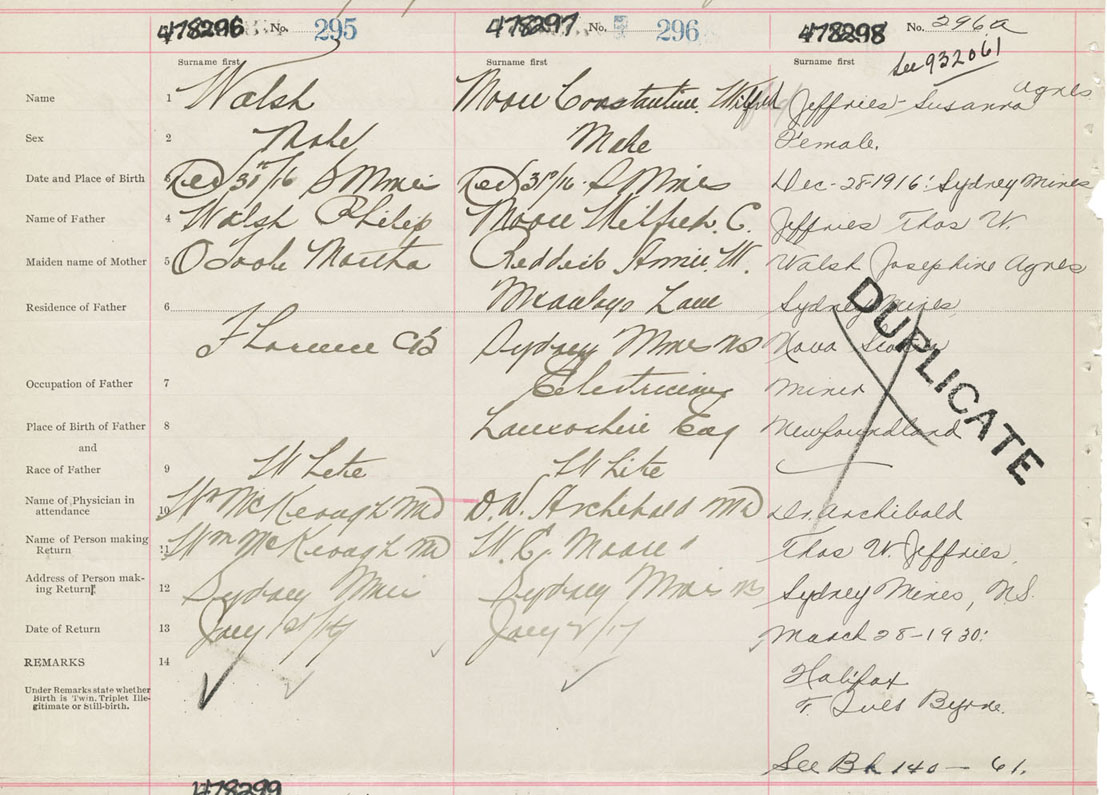 478296 No. 295
478297 No. 296
478298 No. 296a
See 932061
Surname first Surname first Surname first
Name 1 Walsh Moore Constantine Wilfred Jeffries - Susanna Agnes
Sex 2 Male Male Female.
Date and Place of Birth Dec 31st/16 S Mines Dec 31st/16 S Mines Dec - 28 1916: Sydney Mines
Name of Father 4 Walsh Philip Moore Wilfred. C. Jeffries Thos W.
Maiden name of Mother 5 OToole Martha Annie. W. Walsh Josephine Agnes
Residence of Father 6 Lane Sydney Mines,
Florence CB Sydney Mines NS Nova Scotia
Occupation of Father 7 Electrician Miner
Place of Birth of Father 8 Lancashire Eng Newfoundland
and
Race of Father 9 White White
Name of Physician in
attendance 10 Wm McKeough MD D.W. Archibald MD Dr. Archibald
Name of Person making
Return 11 Wm McKeough MD W.C. Moore " Thos W. Jeffries,
Address of Person mak-
ing Return. 12 Sydney Mines Sydney Mines NS Sydney Mines, N.S.
Date of Return 13 Jany 1st/17 Jany 2/17 March 28 - 1930:
REMARKS 14
Under Remarks state whether
Birth is Twin, Triplet Ille-
gitimate or Still-birth.
Halifax
Byrne.
See Bk 140 — 61.
DUPLICATE
478299